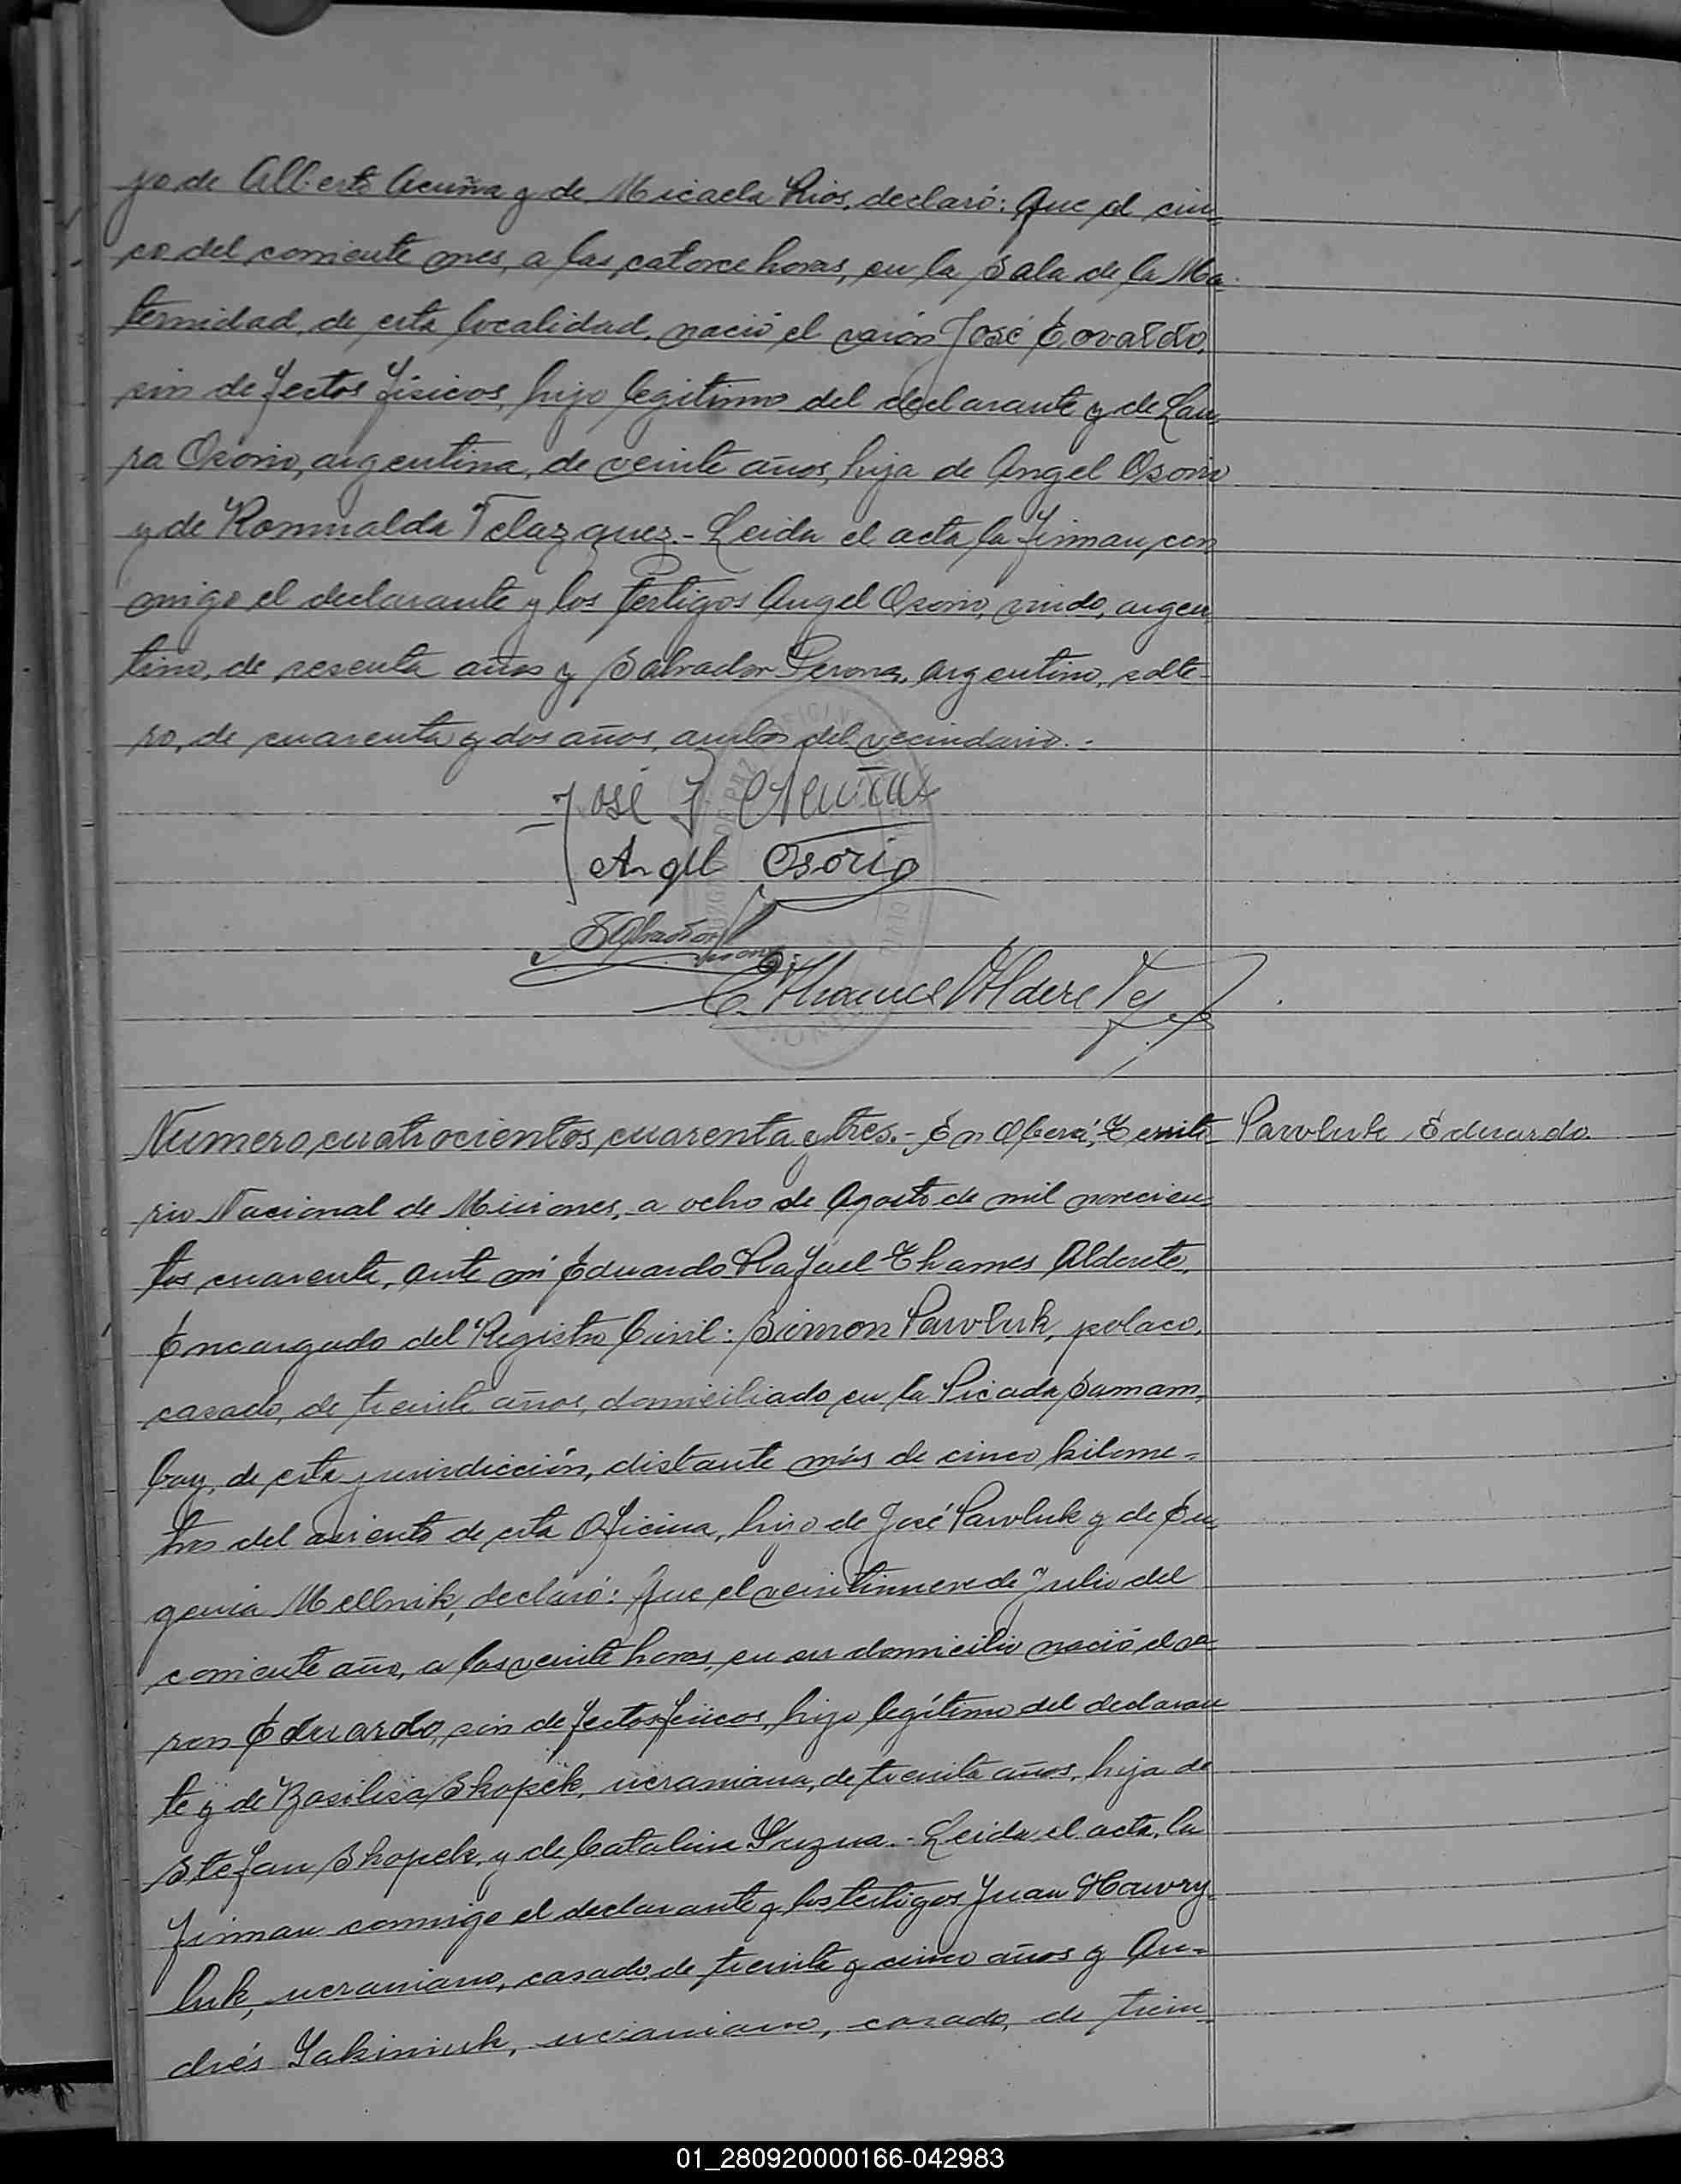 jo de Alberto Acuña y de Micaela Rios, declaró: Que el cin-
co del corriente mes, a las catorce horas, en la Sala de la Ma-
ternidad, de esta localidad, nació el varón José Eovaldo,
sin defectos físicos, hijo legitimo del declarante y de Lau-
ra Osorio, argentina, de veinte años, hija de Angel Osorio
y de Romualda Velazquez.- Leida el acta, la firman con
migo el declarante y los testigos Angel Osorio, viudo, argen-
tino, de sesenta años y Salvador Perona, argentino, solte-
ro, de cuarenta y dos años, ambos del vecindario.-
José J Acuña
Angel Osorio
Salvador
E. Thames Alderete
Numero cuatrocientos cuarenta y tres.- En Oberá, Territo-
Pawluk Eduardo.
rio Nacional de Misiones, a ocho de Agosto de mil novecien-
tos cuarenta, ante mi Eduardo Rafael Thames Alderete,
Encargado del Registro Civil: Simon Pawluk, polaco,
casado, de treinta años, domiciliado en la Picada Samam-
bay, de esta jurisdicción, distante más de cinco kilome-
tros del asiento de esta Oficina, hijo de José Pawluk y de Eu-
genia Mellnik, declaró: Que el veintinueve de Julio del
corriente año, a las veinte horas, en su domicilio nació el va-
ron Eduardo, sin defectos físicos, hijo legítimo del declaran
te y de Basilisa Skopek, ucraniana, de treinta años, hija de
Stefan Skopek, y de Catalina .- Leida el acta, la
firman conmigo el declarante y los testigos Juan Hawry-
luk, ucraniano, casado, de treinta y cinco años y An-
drés Yakimiuk, ucraniano, casado, de trein-
01_280920000166-042983